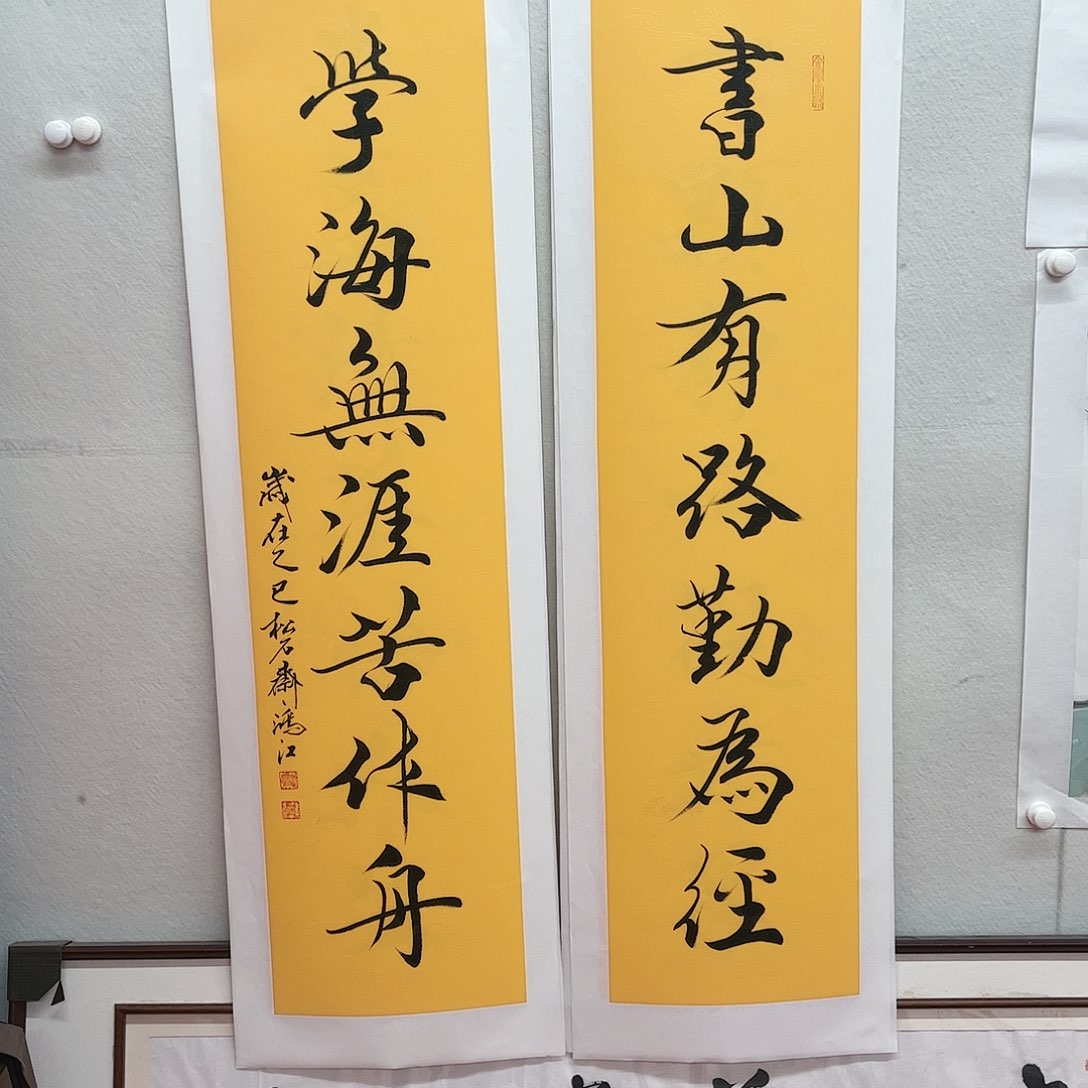 書山有路勤為徑
學海無涯苦作舟
歲在乙巳松石齋鴻江